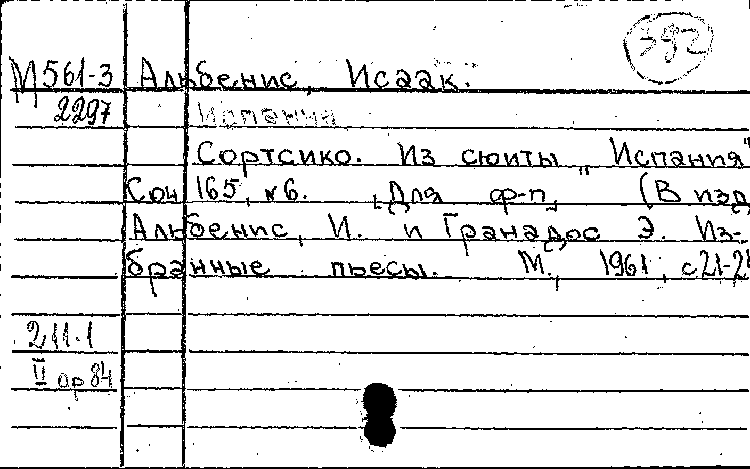 392
М561-3 Альбенис, Исаак.
2297 Испания
Сортсико. Из сюиты „Испания"
Соч 165, №6. [Для ф-п] (В изд
Альбенис, И. и Гранадос Э. Из-
бранные пьесы. М., 1961, с21-2
211.1
II ор 84